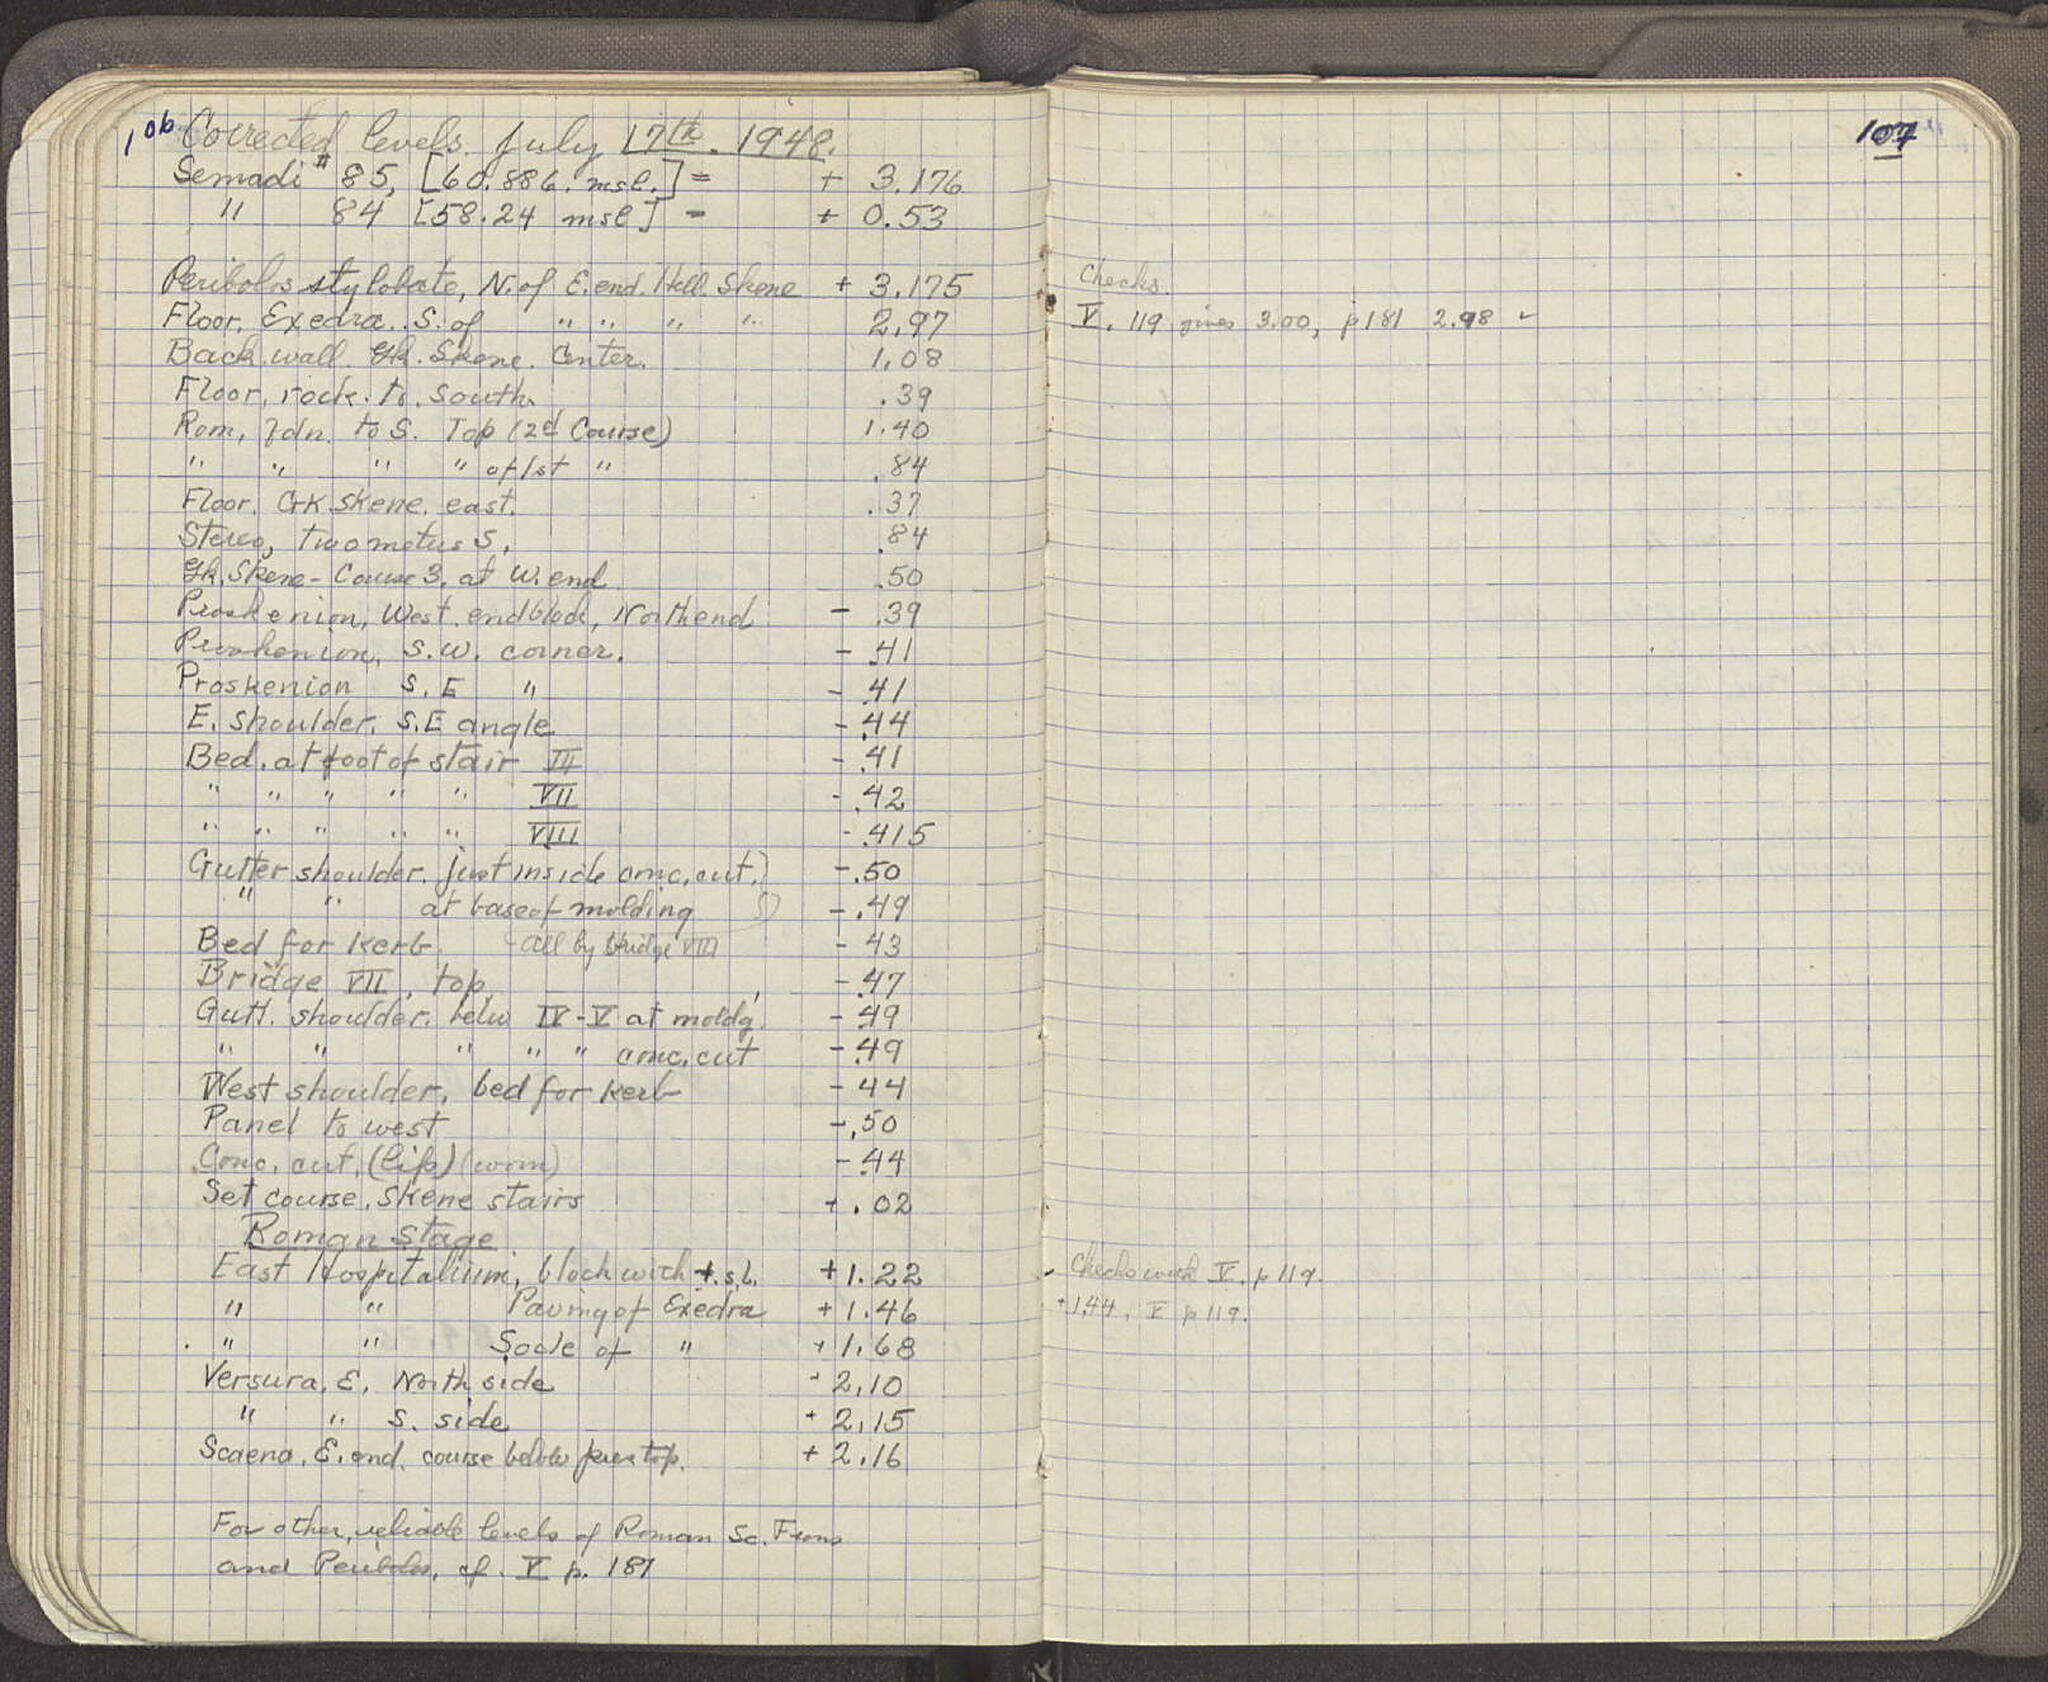 106
Corrected levels. July 17th. 1948.
Semadi # 85, [60.886. msl.] = + 3.176
" 84 [58.24 msl] = + 0.53
Peribolos stylobate, N. of E. end. Hell. Skene + 3.175
Floor, Exedra. S. of " " " " 2.97
Back wall. Gk. Skene. Center. 1.08
Floor, rock. to. South. .39
Rom, fdn. to S. Top (2d Course) 1.40
" " " " of 1st " .84
Floor. Gk skene. east. .37
Stereo, two meters S. .84
Gk. Skene - Course 3, at W. end .50
Proskenion, West. end block, North end - .39
Proskenion, S.W. corner. - .41
Proskenion S. E " - .41
E. shoulder. S.E angle - .44
Bed. at foot of stair III - .41
" " " " " VII - .42
" " " " " VIII - .415
Gutter shoulder. just inside conc. cut. - .50
" " at base of molding - .49
Bed for kerb. - all by bridge VIII - 43
Bridge VII, top - .47
Gutt. shoulder. betw IV - V at moldg. - .49
" " " " " conc. cut - .49
West shoulder, bed for kerb - 44
Panel to west - .50
Conc. cut, (lip) (worn) - .44
Set course. Skene stairs + .02
Roman Stage
East Hospitalium, block with + s.b. + 1.22
" " Paving of Exedra + 1.46
" " Socle of " + 1.68
Versura, E. North side + 2.10
" " S. side + 2.15
Scaena. E. end. course below pres top. + 2.16
For other, reliable levels of Roman Sc. Frons
and Peribolos, cf. V p. 181
107
Checks.
V. 119 gives 3.00, p 181 2.98 ✓
✓ Checks with V. p 119.
+1.44. V p 119.